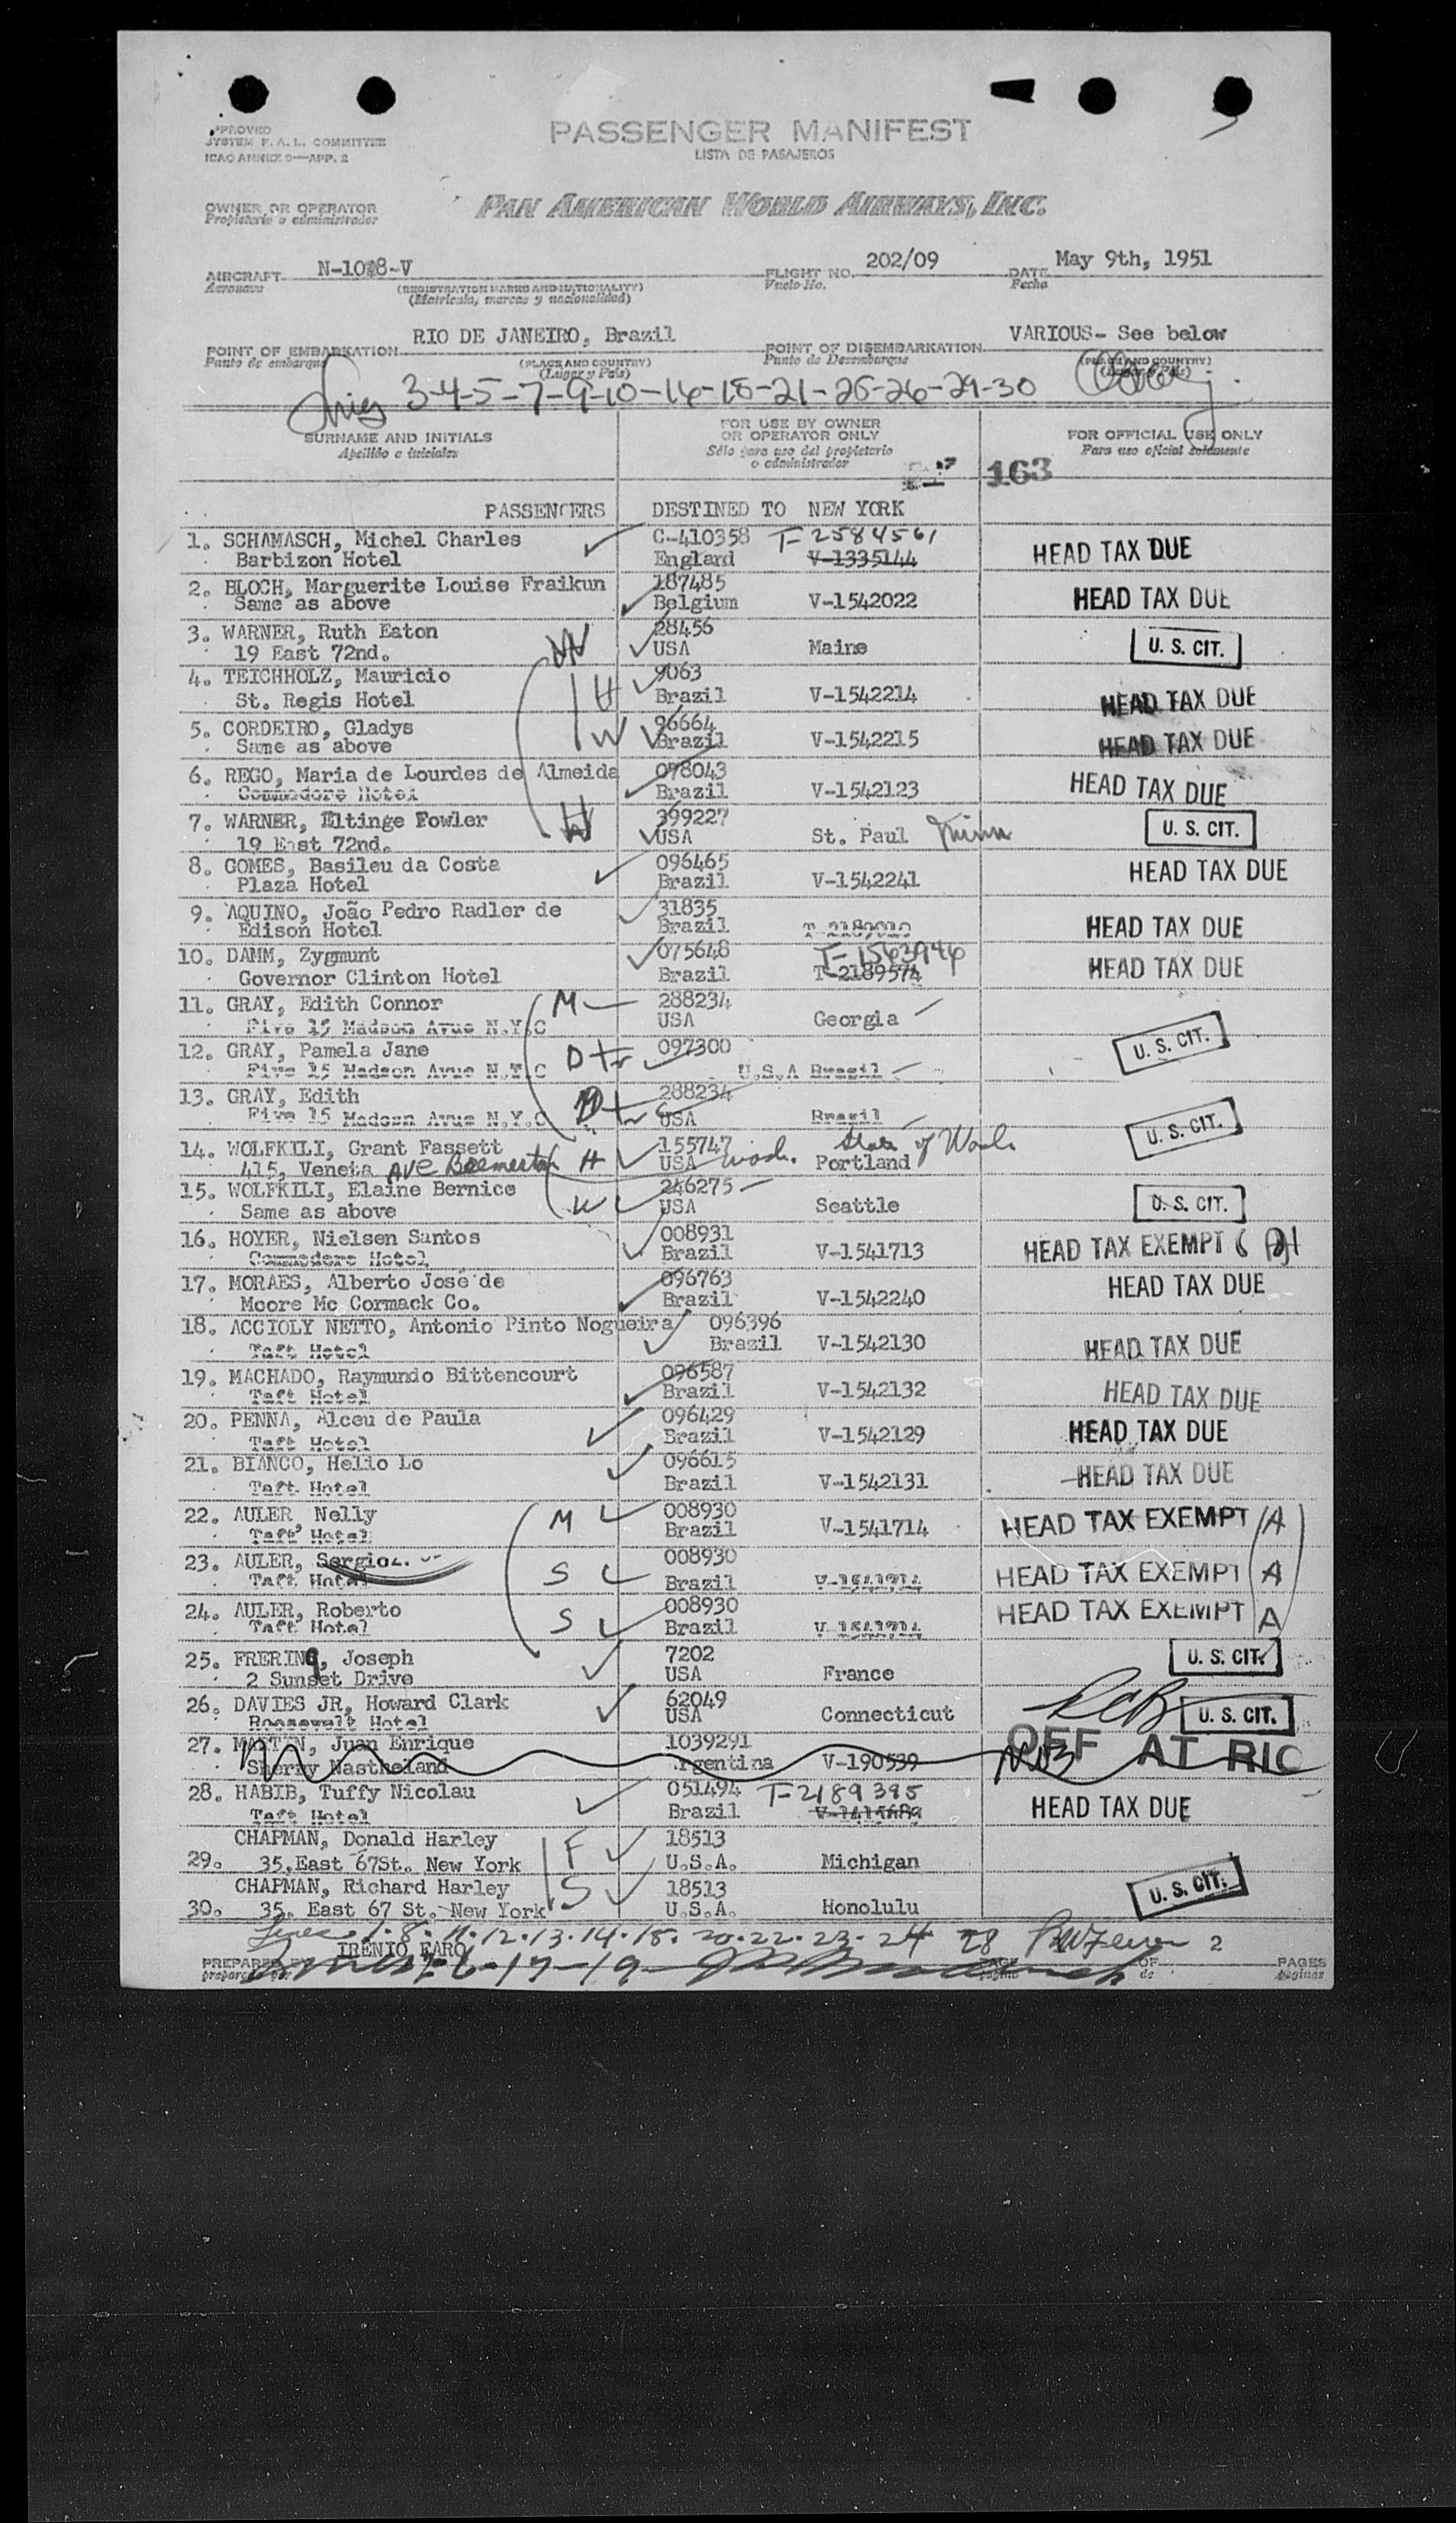 APPROVED
SYSTEM F. A. L. COMMITTEE
ICAO ANNEX 9—APP. 2
PASSENGER MANIFEST
LISTA DE PASAJEROS
OWNER OR OPERATOR
Propietario o administrador
PAN AMERICAN WORLD AIRWAYS, INC.
AIRCRAFT N-1028-V FLIGHT NO. 202/09 DATE May 9th, 1951
Aeronave (REGISTRATION MARKS AND NATIONALITY) Vuelo No. Fecha
(Matricula, marcas y nacionalidad)
POINT OF EMBARKATION RIO DE JANEIRO, Brazil POINT OF DISEMBARKATION VARIOUS- See below
Punto de embarque (PLACE AND COUNTRY) Punto de Desembarque (PLACE AND COUNTRY)
(Lugar y País) (Lugar y País)
3-4-5-7-9-10-16-18-21-25-26-29-30
SURNAME AND INITIALS FOR USE BY OWNER OR OPERATOR ONLY FOR OFFICIAL USE ONLY
Apellido e iniciales Sólo para uso del propietario o administrador Para uso oficial solamente
163
PASSENGERS DESTINED TO NEW YORK
1. SCHAMASCH, Michel Charles C-410358 T-2584561
Barbizon Hotel England V-1335144 HEAD TAX DUE
2. BLOCH, Marguerite Louise Fraikun 187485
Same as above Belgium V-1542022 HEAD TAX DUE
3. WARNER, Ruth Eaton W 28456
19 East 72nd. USA Maine U. S. CIT.
4. TEICHHOLZ, Mauricio H 9063
St. Regis Hotel Brazil V-1542214 HEAD TAX DUE
5. CORDEIRO, Gladys W 96664
Same as above Brazil V-1542215 HEAD TAX DUE
6. REGO, Maria de Lourdes de Almeida 078043
Commodore Hotel Brazil V-1542123 HEAD TAX DUE
7. WARNER, Eltinge Fowler H 399227
19 East 72nd. USA St. Paul Minn U. S. CIT.
8. GOMES, Basileu da Costa 096465
Plaza Hotel Brazil V-1542241 HEAD TAX DUE
9. AQUINO, João Pedro Radler de 31835
Edison Hotel Brazil HEAD TAX DUE
10. DAMM, Zygmunt 075648 T-1563946
Governor Clinton Hotel Brazil T-2189574 HEAD TAX DUE
11. GRAY, Edith Connor M 288234
Five 15 Madson Avue N.Y.C USA Georgia
12. GRAY, Pamela Jane Dtr 097300
Five 15 Madson Avue N.Y.C U.S.A Brasil U. S. CIT.
13. GRAY, Edith Dtr 288234
Five 15 Madson Avue N.Y.C USA Brasil U. S. CIT.
14. WOLFKILI, Grant Fassett 155747 State of Wash.
415, Veneta AVE Bremerton H USA Wash. Portland
15. WOLFKILI, Elaine Bernice W 246275
Same as above USA Seattle U. S. CIT.
16. HOYER, Nielsen Santos 008931
Commodore Hotel Brazil V-1541713 HEAD TAX EXEMPT
17. MORAES, Alberto José de 096763
Moore Mc Cormack Co. Brazil V-1542240 HEAD TAX DUE
18. ACCIOLY NETTO, Antonio Pinto Nogueira 096396
Taft Hotel Brazil V-1542130 HEAD TAX DUE
19. MACHADO, Raymundo Bittencourt 096587
Taft Hotel Brazil V-1542132 HEAD TAX DUE
20. PENNA, Alceu de Paula 096429
Taft Hotel Brazil V-1542129 HEAD TAX DUE
21. BIANCO, Helio Lo 096615
Taft Hotel Brazil V-1542131 HEAD TAX DUE
22. AULER, Nelly M 008930
Taft Hotel Brazil V-1541714 HEAD TAX EXEMPT A
23. AULER, Sergio 008930
Taft Hotel S Brazil V-1541714 HEAD TAX EXEMPT A
24. AULER, Roberto S 008930
Taft Hotel Brazil V 1541714 HEAD TAX EXEMPT A
25. FRERING, Joseph 7202
2 Sunset Drive USA France U. S. CIT.
26. DAVIES JR, Howard Clark 62049
Roosevelt Hotel USA Connecticut U. S. CIT.
27. MARTIN, Juan Enrique 1039291 OFF AT RIO
Sherry Nastheland Argentina V-190539
28. HABIB, Tuffy Nicolau 051494 T-2189395
Taft Hotel Brazil HEAD TAX DUE
CHAPMAN, Donald Harley F 18513
29. 35, East 67St. New York U.S.A. Michigan
CHAPMAN, Richard Harley S 18513
30. 35, East 67 St. New York U.S.A. Honolulu U. S. CIT.
1. 8. 11. 12. 13. 14. 15. 20. 22. 23. 24 28
IRENIO FARO 2
PREPARED BY 2-6-17-19 PAGE OF PAGES
preparado por página de páginas